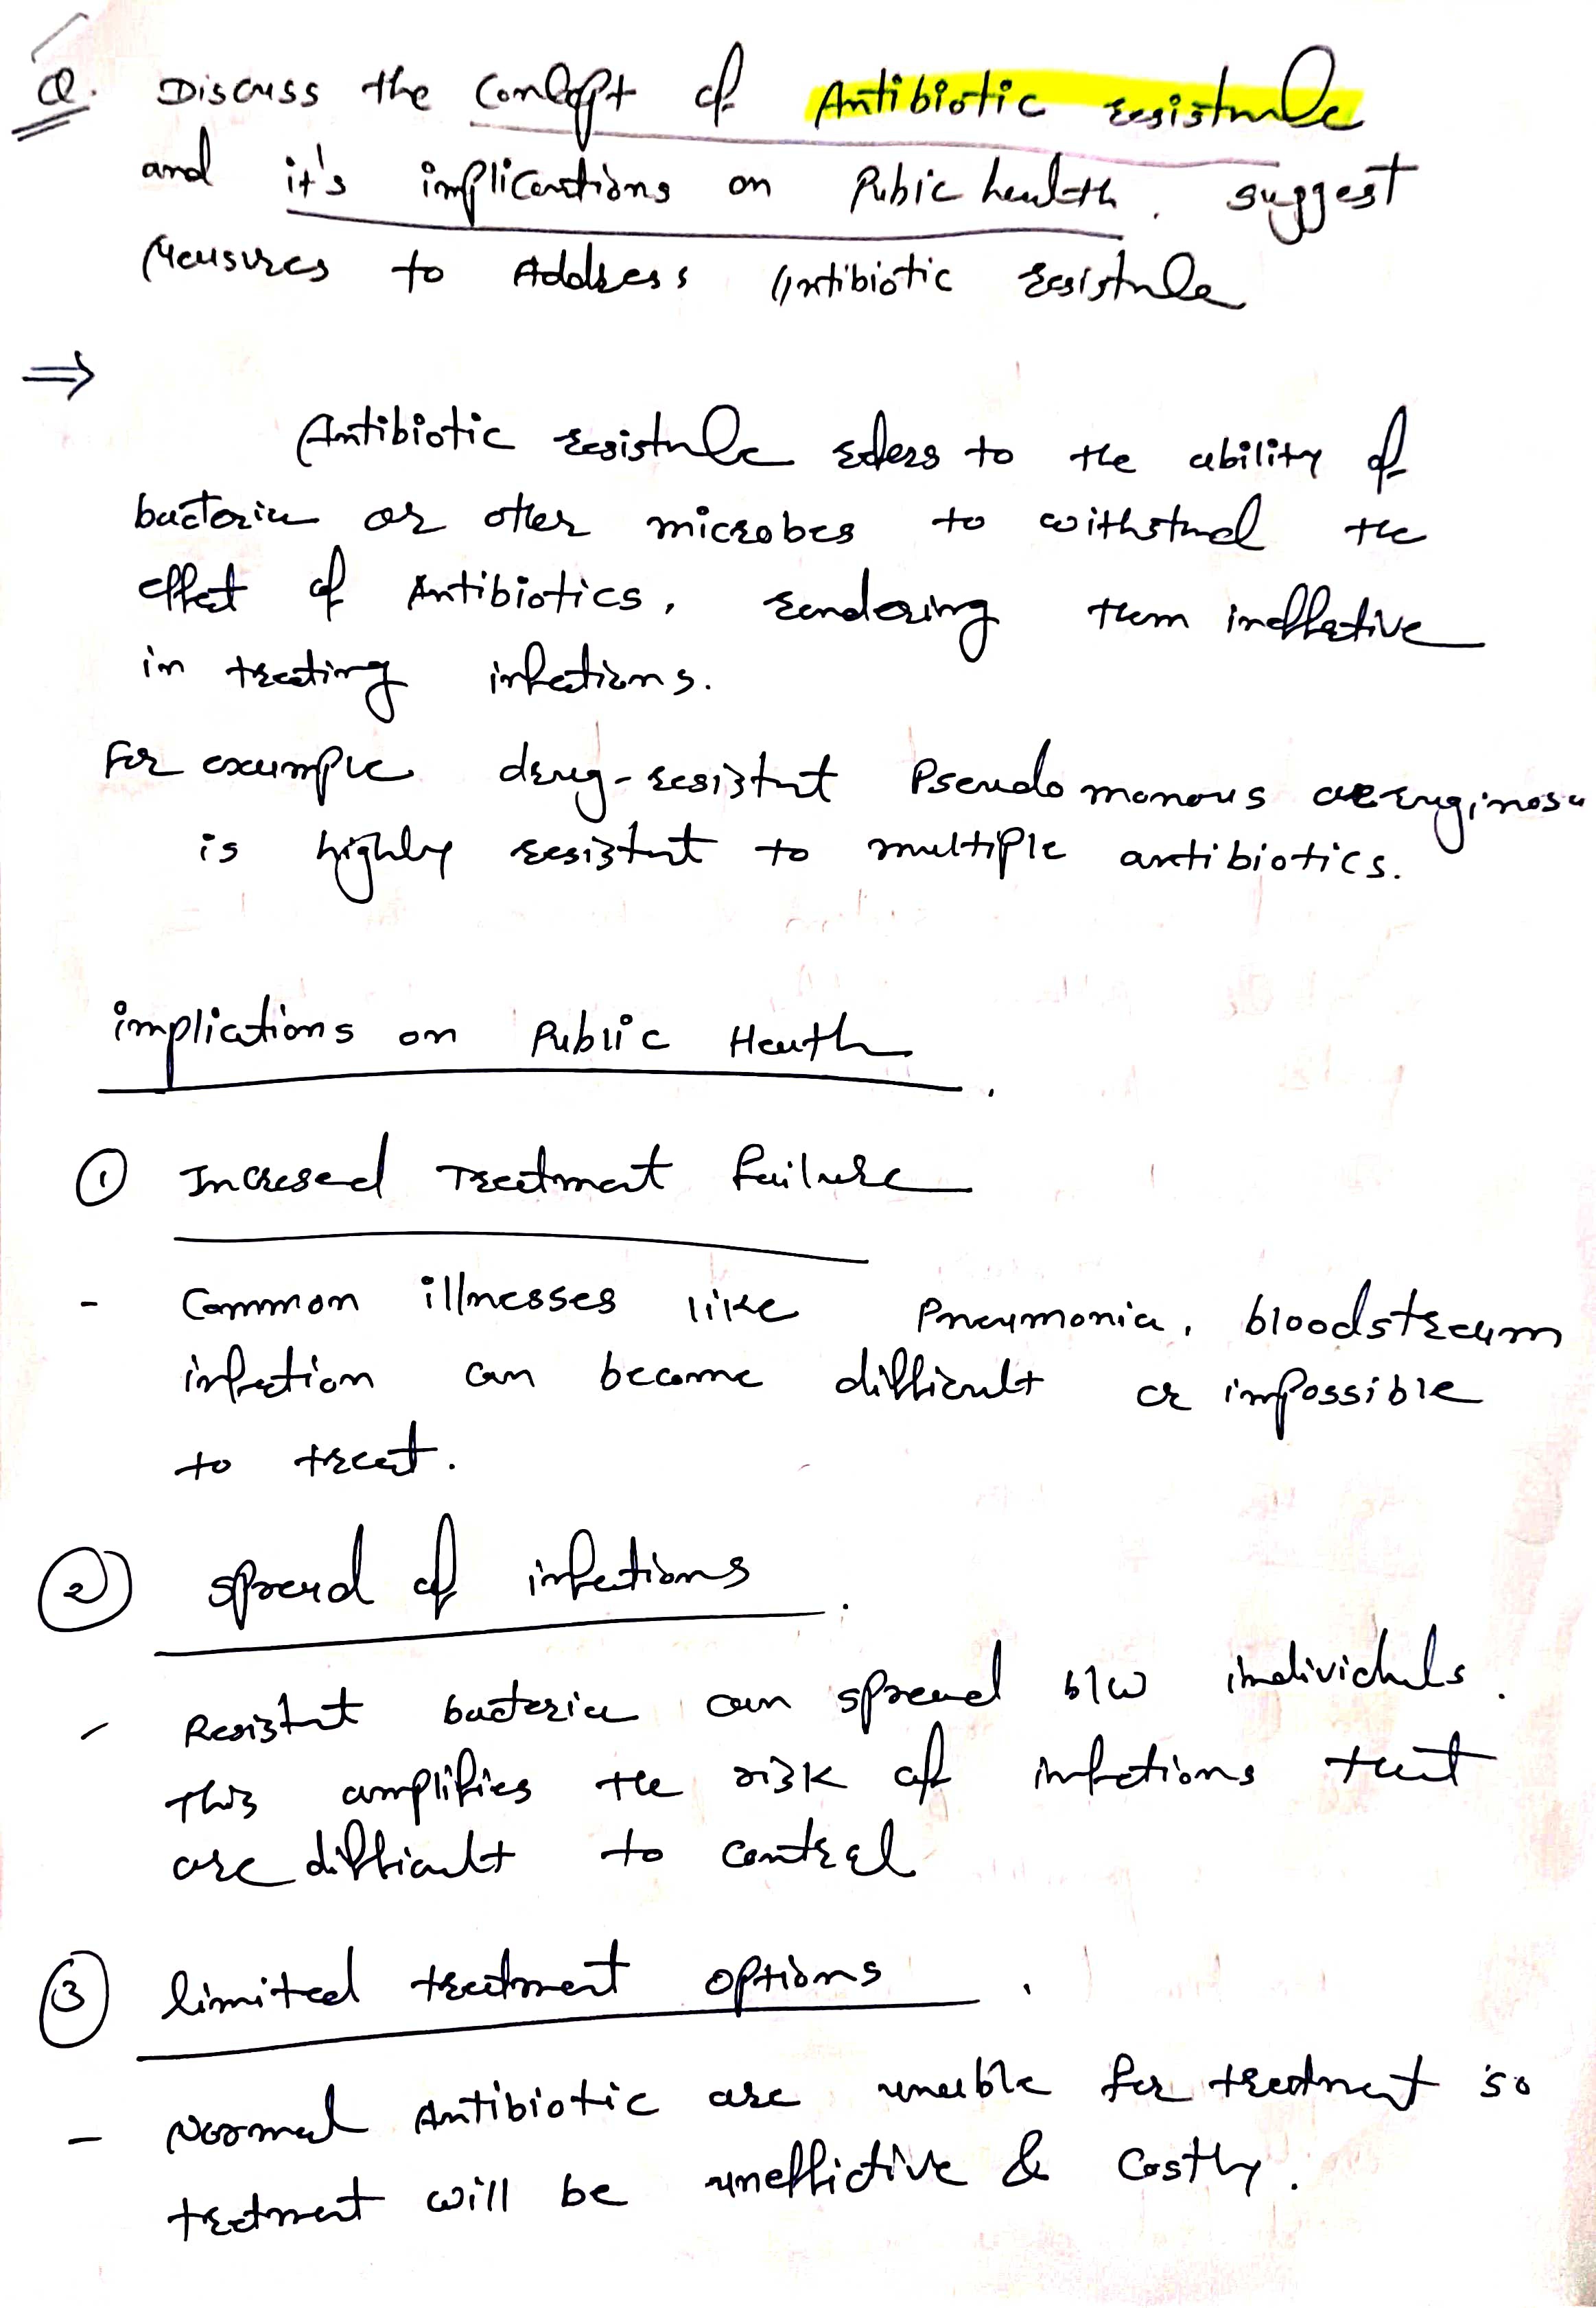 Q. Discuss the Concept of Antibiotic resistance
and it's implications on Pubic health. suggest
Measures to Address Antibiotic resistance
⇒
Antibiotic resistance refers to the ability of
bacteria or other microbes to withstand the
effect of Antibiotics, rendering them ineffective
in treating infections.
For example drug-resistant Pseudomonous aeruginosa
is highly resistant to multiple antibiotics.
implications on Public Health.
① Incresed Treatment failure
- Common illnesses like Pneumonia, bloodstream
infection can become difficult or impossible
to treat.
② spread of infections.
- Resistant bacteria can spread b/w individuals.
This amplifies the risk of infections that
are difficult to control
③ limited treatment options.
- Normal Antibiotic are unable for treatment so
tretment will be uneffictive & Costly.